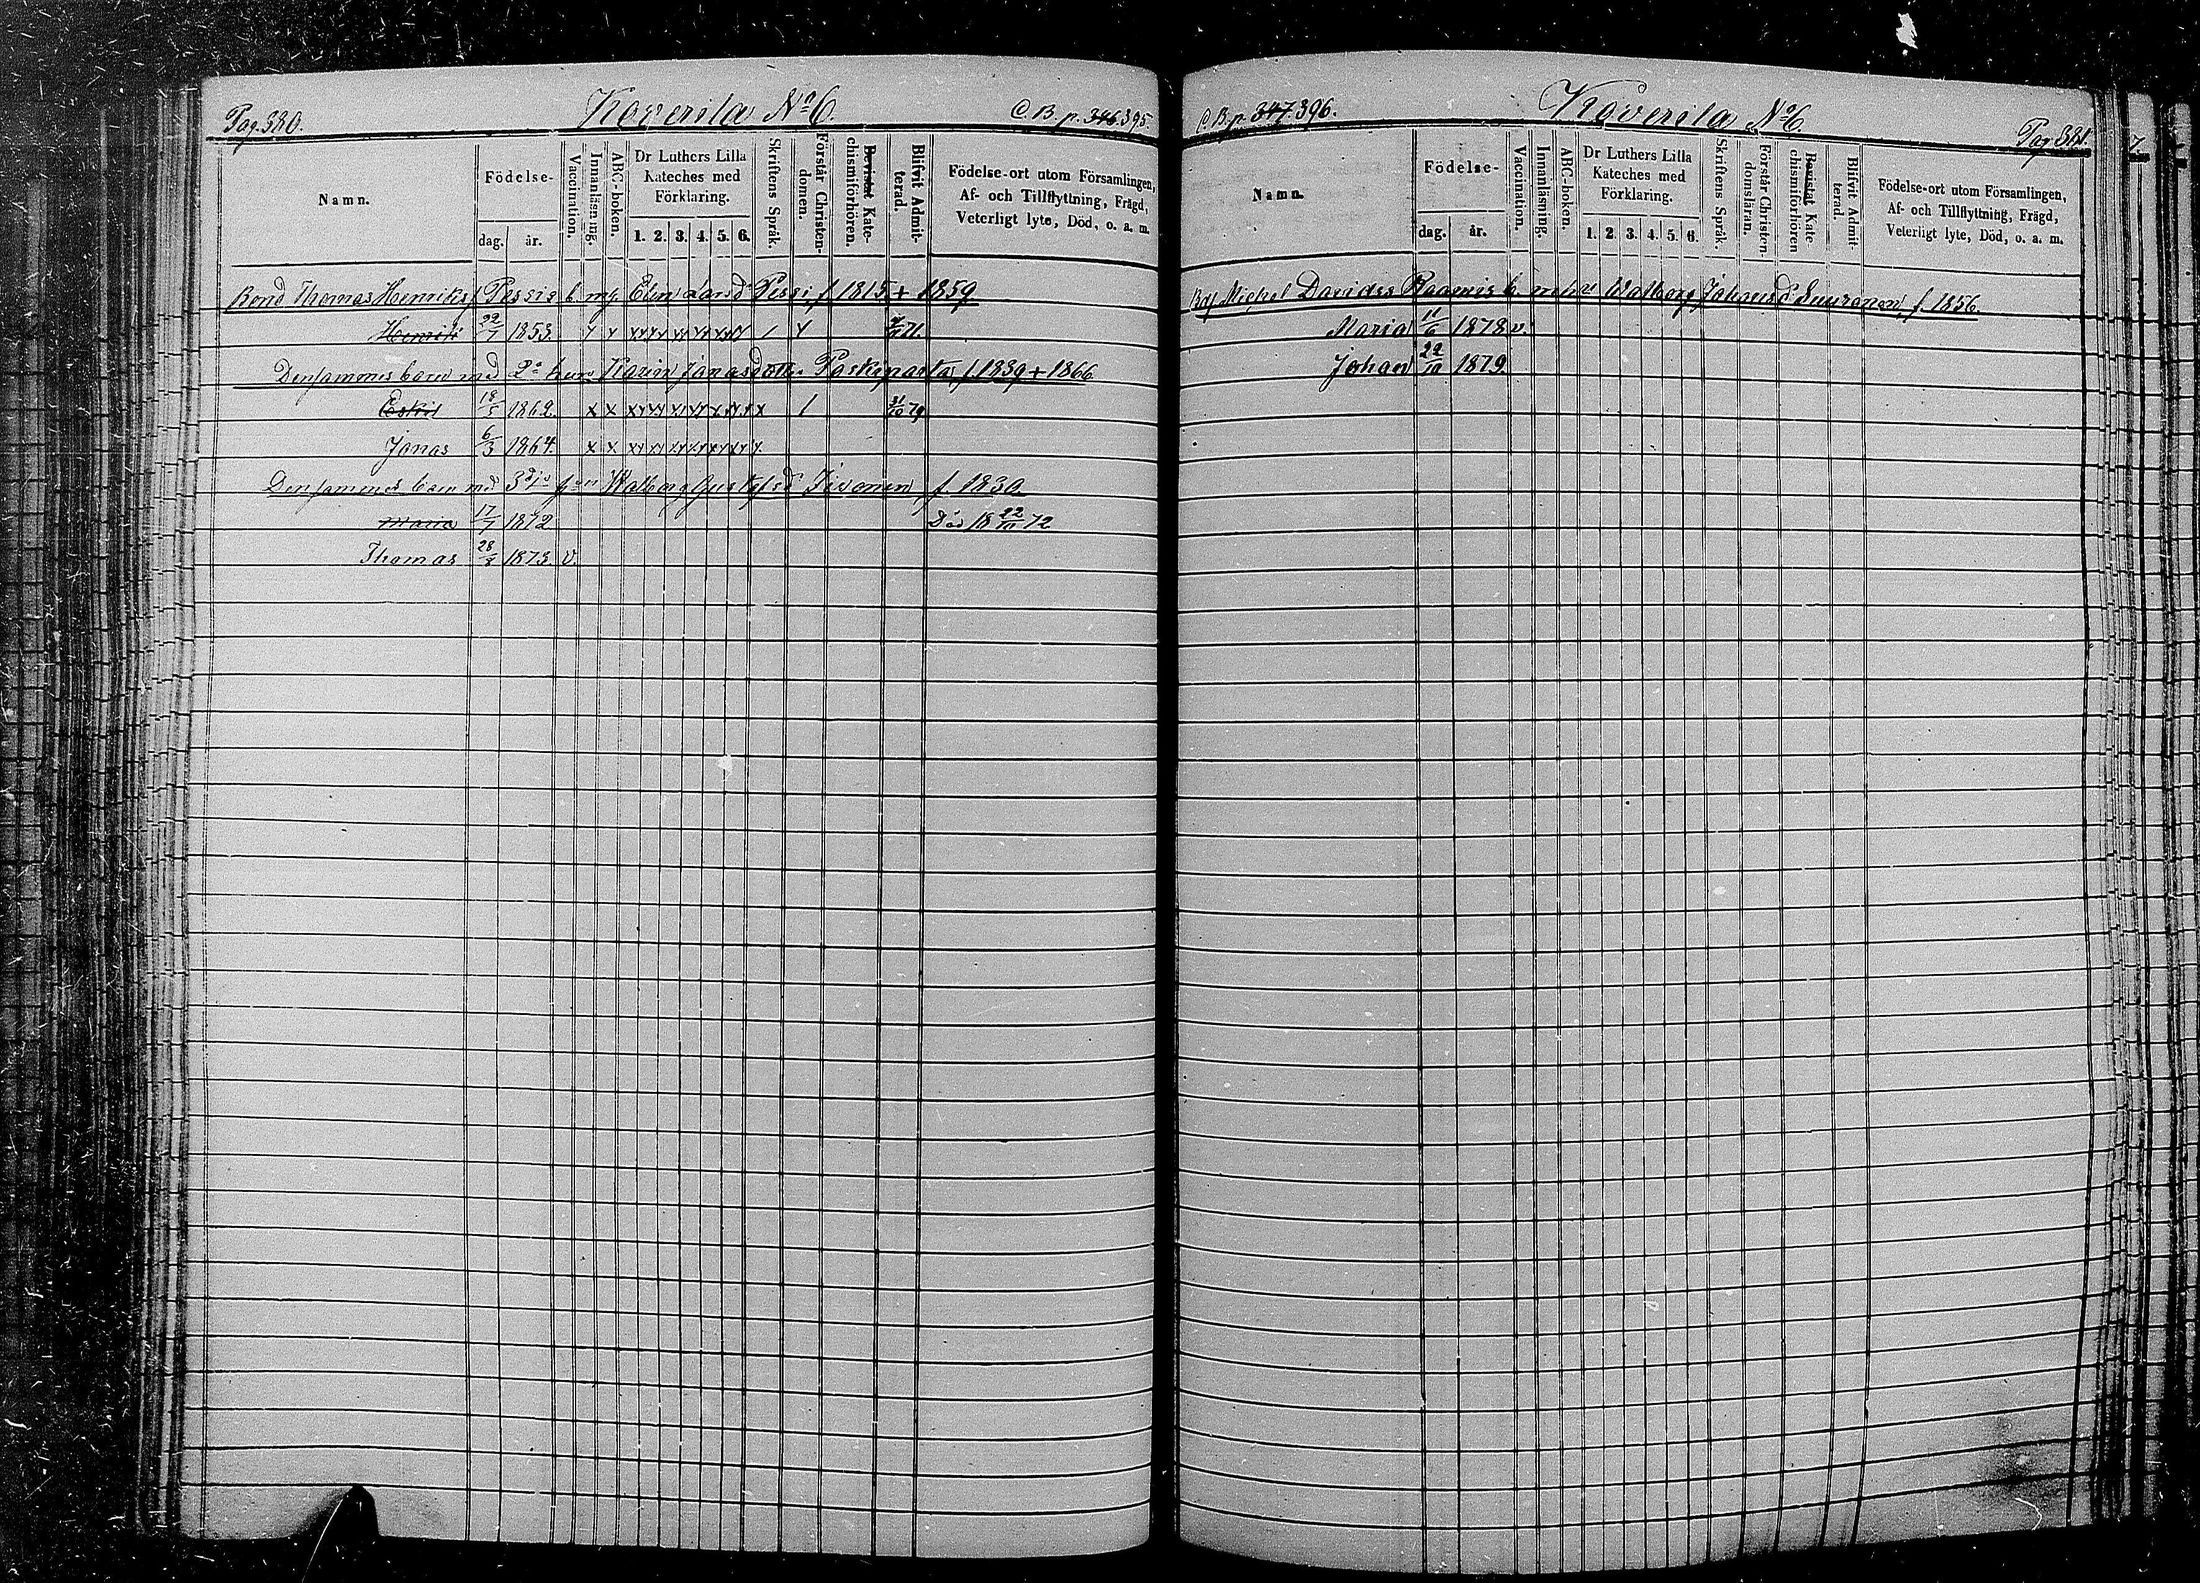 Pag. 380.
Koverila № 6.
C.B.p. 346. 395
Namn.
Födelse-
dag. år.
Vaccination.
Innanläsning.
ABC-boken.
Dr Luthers Lilla
Kateches med
Förklaring.
1. 2. 3. 4. 5. 6.
Skriftens Språk.
Förstår Christen-
domen.
Bevistat Kate-
chismiförhören.
Blifvit Admit-
terad.
Födelse-ort utom Församlingen,
Af- och Tillflyttning, Frägd,
Veterligt lyte, Död, o. a. m.
Bond Thomas Henriks Pessis b. m. Elin Pessi, f. 1815 + 1859
Henrik 22/7 1853. 71.
Densammes barn med 2a hu Karin Jonasdotter f. 1839 + 1866
Eskil 18/5 1862. 31/10 79
Jonas 6/3 1864.
Densammes barn md 3dje Walborg Gustafsd Iivonen, f. 1830.
Maria 17/7 1872 Död 18 22/10 72
Thomas 28/8 1873. v.
C.B.p. 347. 396.
Koverila № 6.
Pag. 381.
Namn.
Födelse-
dag. år.
Vaccination.
Innanläsning.
ABC-boken.
Dr Luthers Lilla
Kateches med
Förklaring.
1. 2. 3. 4. 5. 6.
Skriftens Språk.
Förstår Christen-
domsläran.
Bevistat Kate
chismiförhören
Blifvit Admit
terad.
Födelse-ort utom Församlingen,
Af- och Tillflyttning, Frägd,
Veterligt lyte, Död, o. a. m.
Michel Davidss b. m. hu Walborg Johansd Suuronen, f. 1856.
Maria 11/6 1878 v.
Johan 22/10 1879